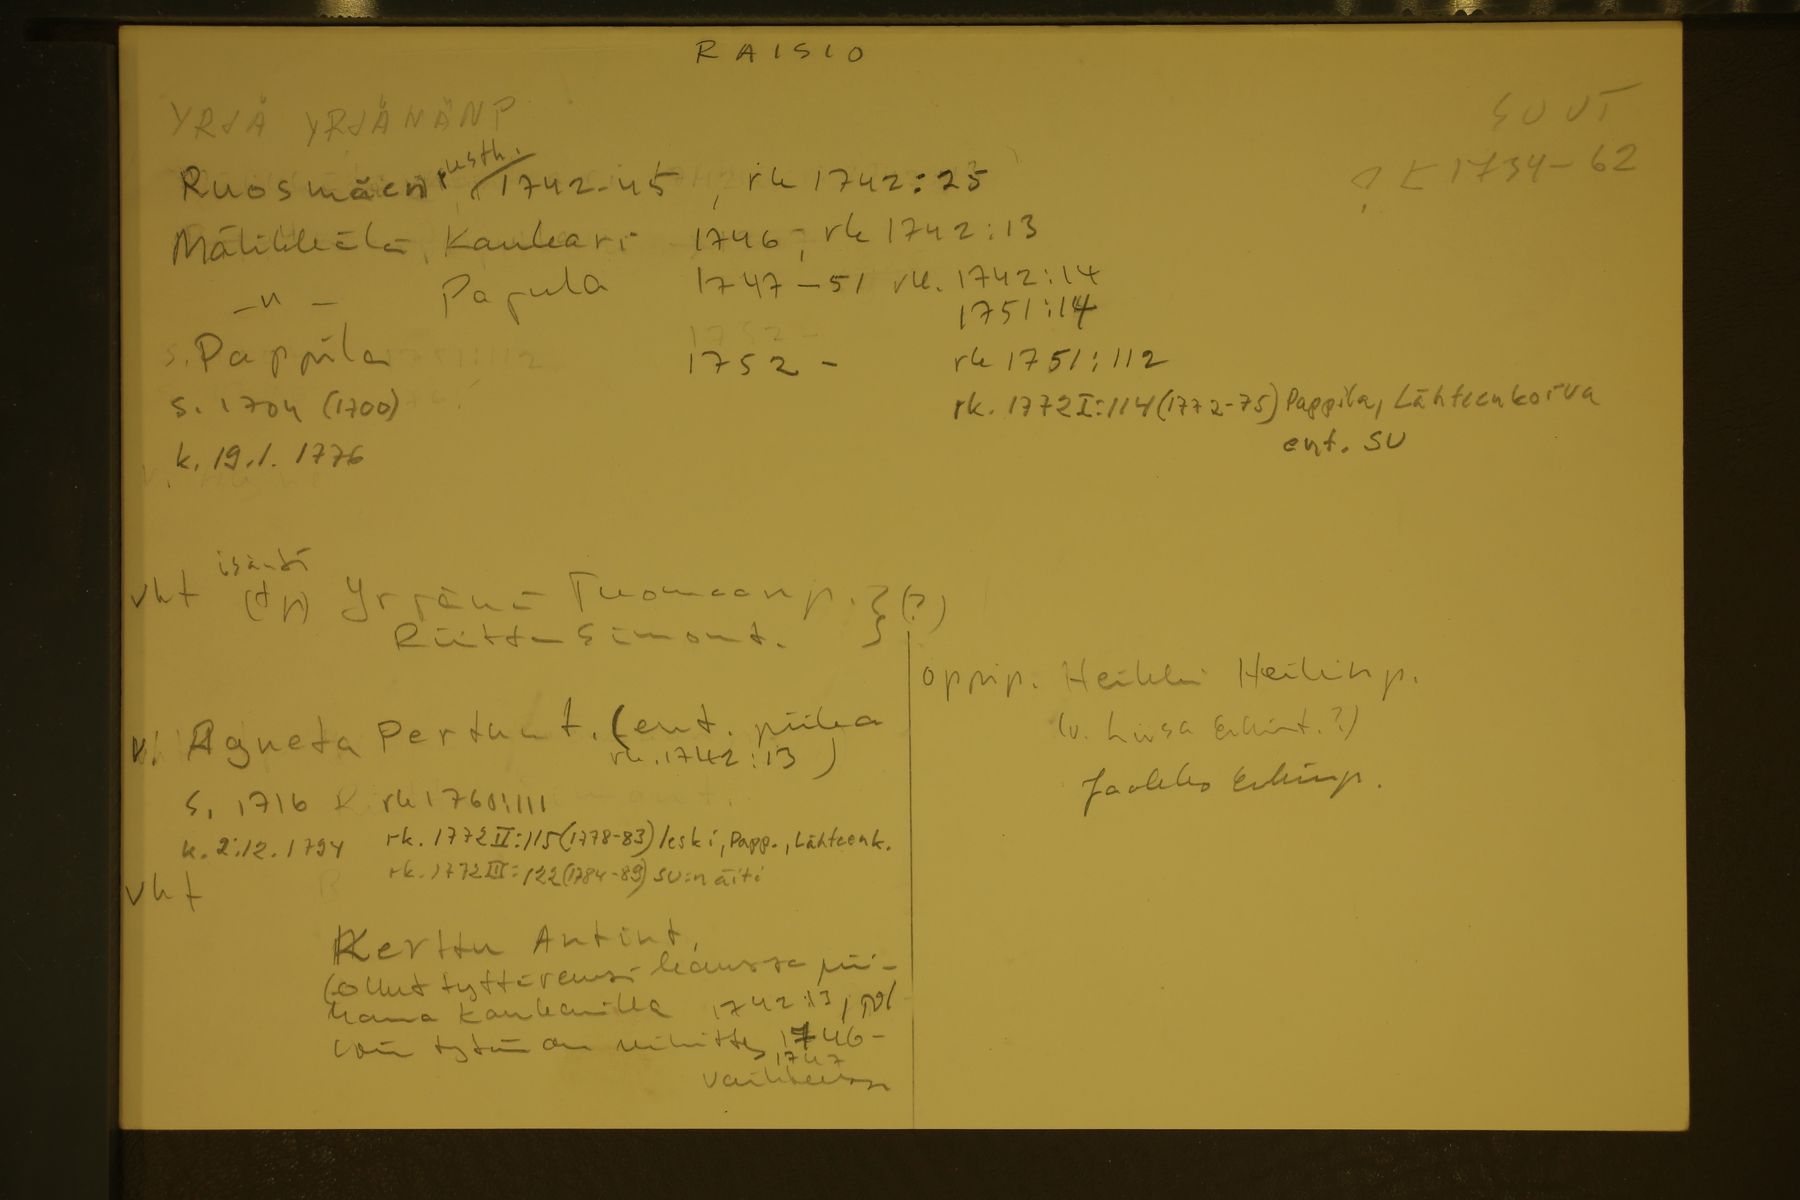 RAISIO
YRJÄ YRJÄNÄNP
SUUT
? K 1734-62
Ruosmäen rusth. 1742-45, rk 1742:25
Mälikkälä, Kaukari 1746, rk 1742:13
-"- Papula 1747-51 rk. 1742:14
1751:14
1752-
s. Pappila 1752- rk 1751:112
s. 1704 (1700) rk. 1772 I:114 (1772-75) Pappila, Lähteenkorva
ent. SU
k. 19.1. 1776
isäntä
vht Yrjänä Tuomaanp. } (?)
Riitta Simont.
oppip. Heikki Heikinp.
(v. Liisa Erkint.?)
Jaakko Erkinp.
v. Agneta Pertunt. (ent. piika
rk. 1742:13)
s. 1716 rk 1760:111
k. 2.12. 1794 rk. 1772 II:115 (1778-83) leski, Papp., Lähteenk.
rk. 1772 III: 122 (1784-89) SU:n äiti
vht
Kerttu Antint.
(ollut tyttärensä kanssa pii-
kana Kaukarilla 1742:13, jol
loin tytär on vihitty 1746-
1747
vaihteessa